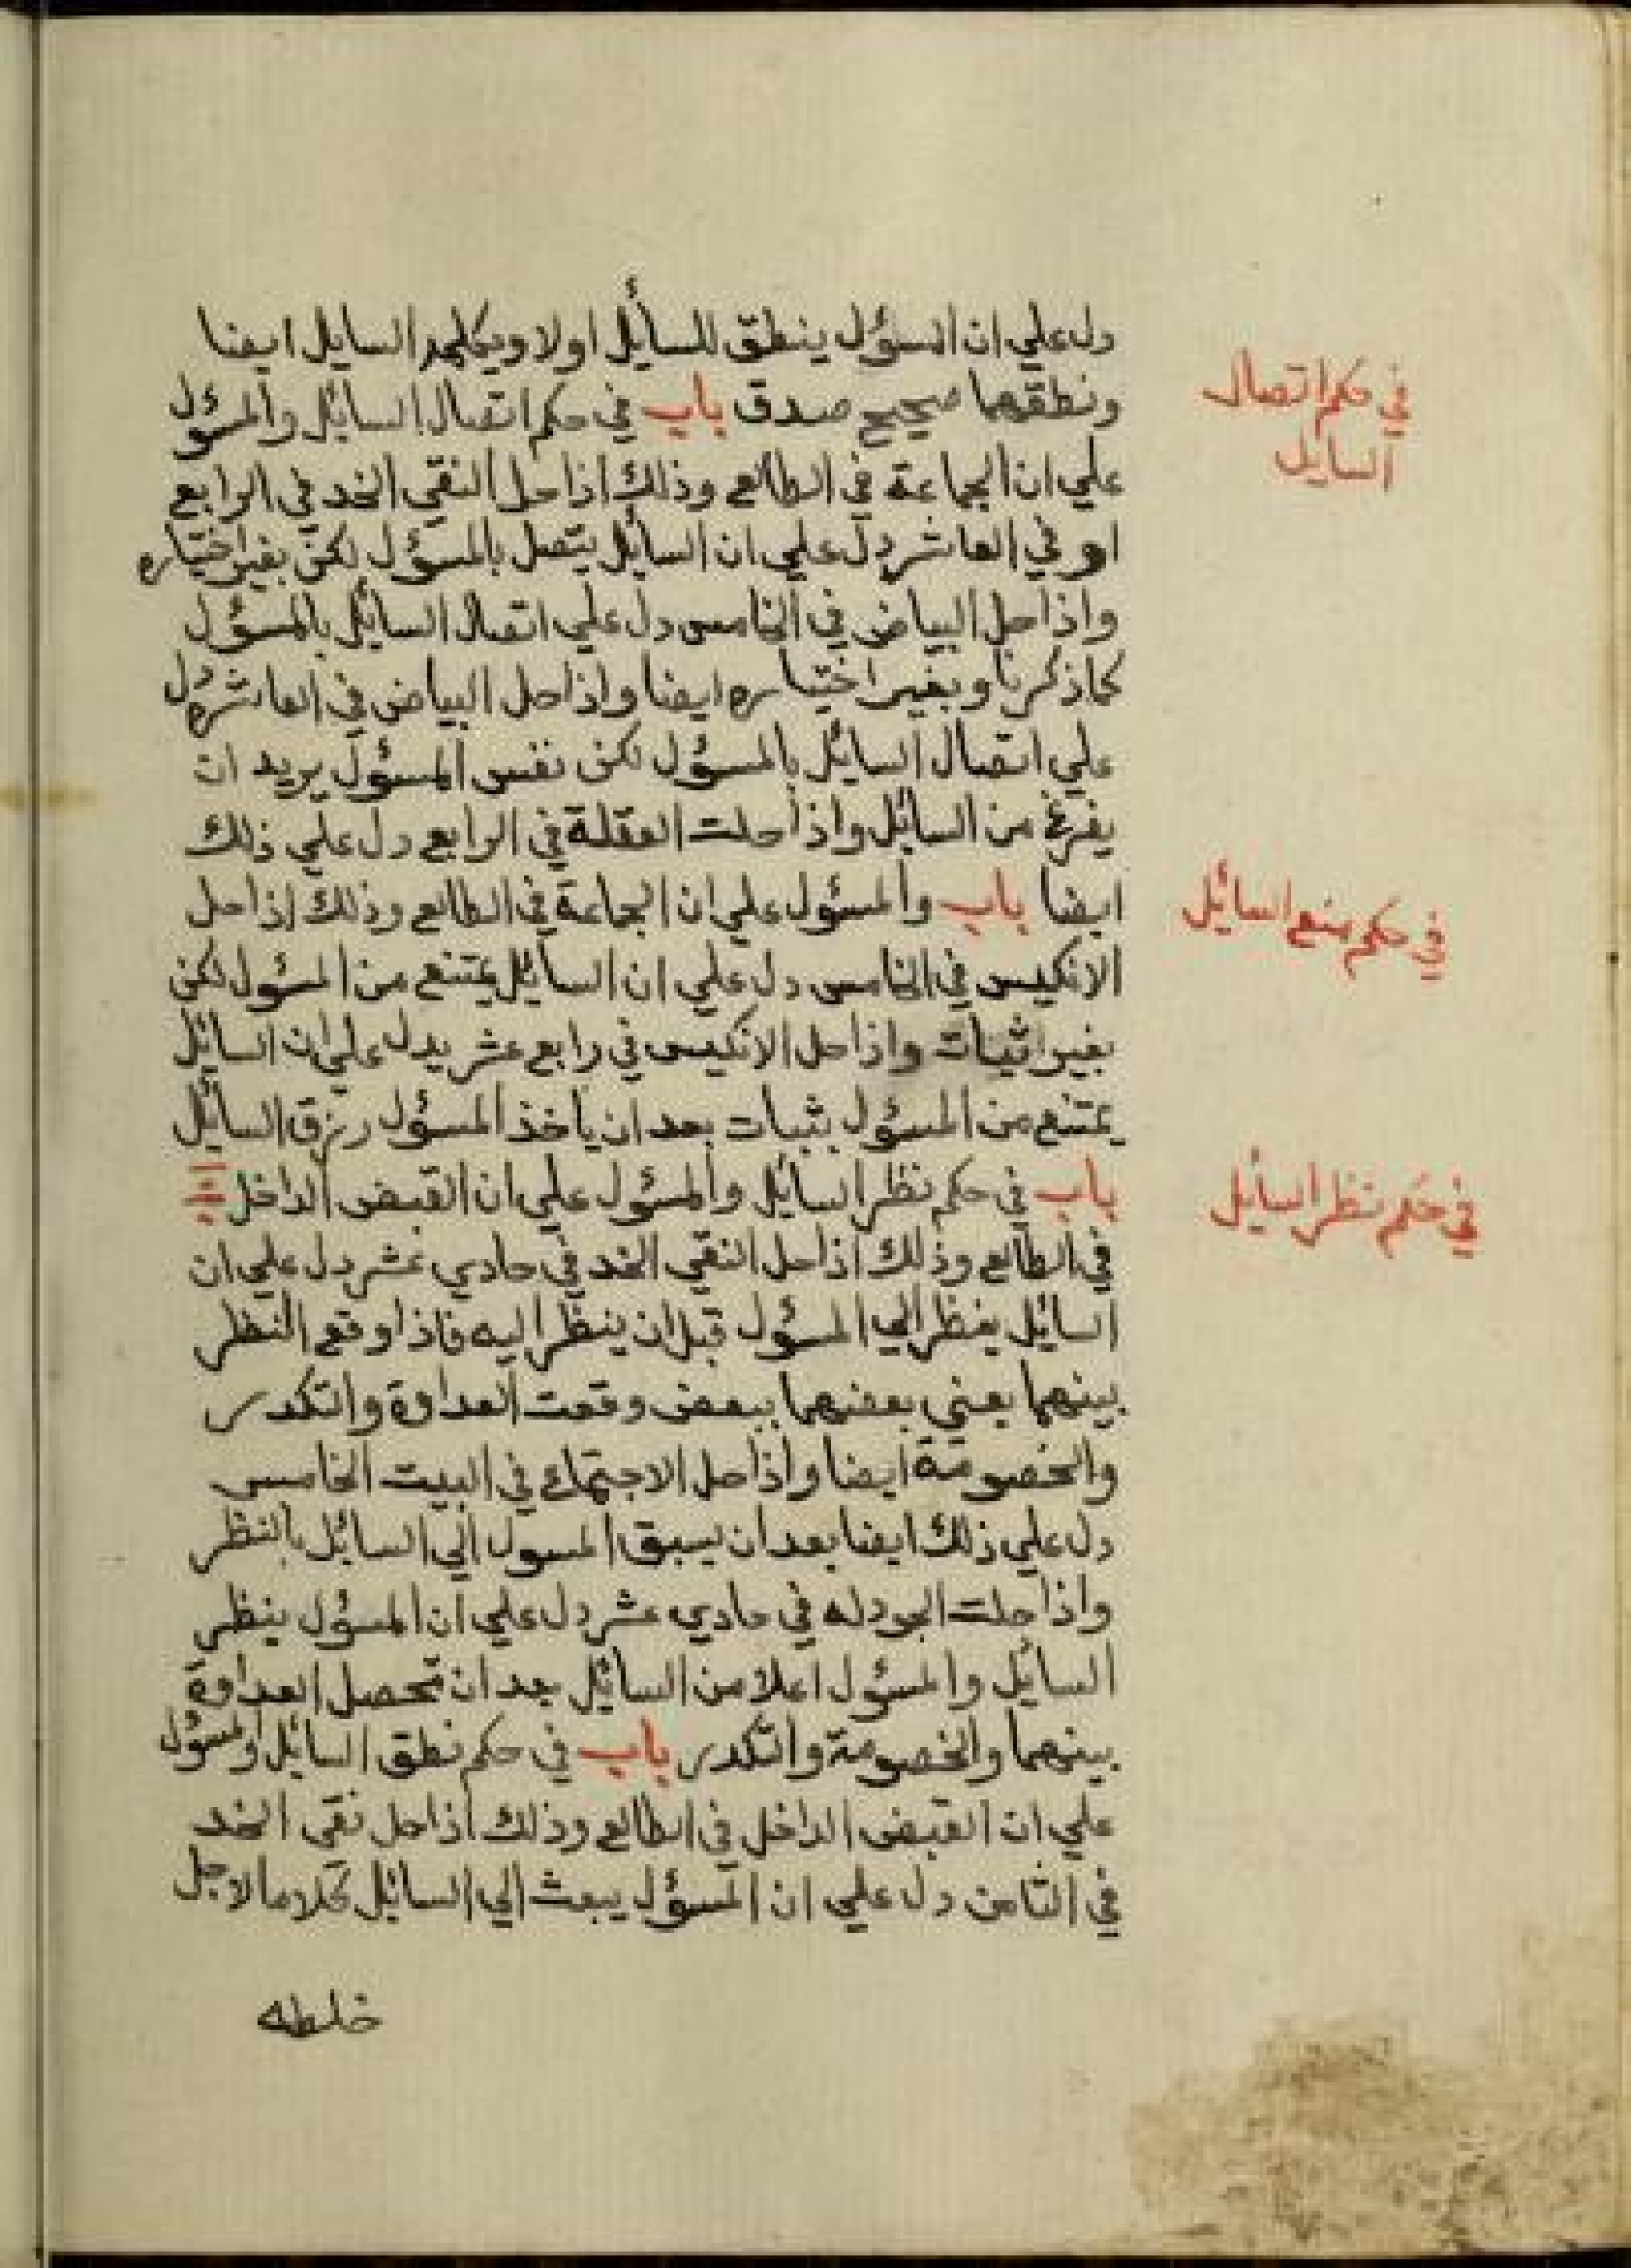 دل علي ان المسؤل ينطق للسأيل اولا ويكلمه السايل ايضا
ونطقهما صحيح صدق باب في حكم اتصال السائل والمسؤل
علي ان الجماعة في الطالع وذلك اذا حل النقي الخد في الرابع
او في العاشر دل علي ان السائل يتصل بالمسؤل لكن بغير اختياره
واذا حل البياض في الخامس دل علي اتصال السائل بالمسؤل
كما ذكرنا وبغير اختياره ايضا واذا حل البياض في العاشر دل
علي اتصال السائل بالمسؤل لكن نفس المسؤل يريد ان
يفرغ من السائل واذا حلت العقلة في الرابع دل علي ذلك
ايضا باب والمسؤل علي ان الجماعة في الطالع وذلك اذا حل
الانكيس في الخامس دل علي ان السائل يمتنع من المسؤل لكن
بغير اثبات واذا حل الانكيس في رابع عشر يدل علي ان السائل
يمتنع من المسؤل بثبات بعد ان ياخذ المسؤل رزق السائل
باب في حكم نظر السائل والمسؤل علي ان القبض الداخل
في الطالع وذلك اذا حل النقي الخد في حادي عشر دل علي ان
السائل ينظر الي المسؤل قبل ان ينظر اليه فاذا وقع النظر
بينهما يعني بعضهما ببعض وقعت العداوة والتكدر
والخصومة ايضا واذا حل الاجتماع في البيت الخامس
دل علي ذلك ايضا بعد ان يسبق المسول الي السائل بالنظر
واذا حلت الجودله في حادي عشر دل علي ان المسؤل ينظر
السائل والمسؤل اعلا من السائل بعد ان تحصل العداوة
بينهما والخصومة والتكدر باب في حكم نطق السائل والمسؤل
علي ان القبض الداخل في الطالع وذلك اذا حل نقي الخد
في الثامن دل علي ان المسؤل يبعث الي السائل كلاما لاجل
خلطه
في حكم اتصال
السايل
في حكم منع السائل
في حكم نظر السائل